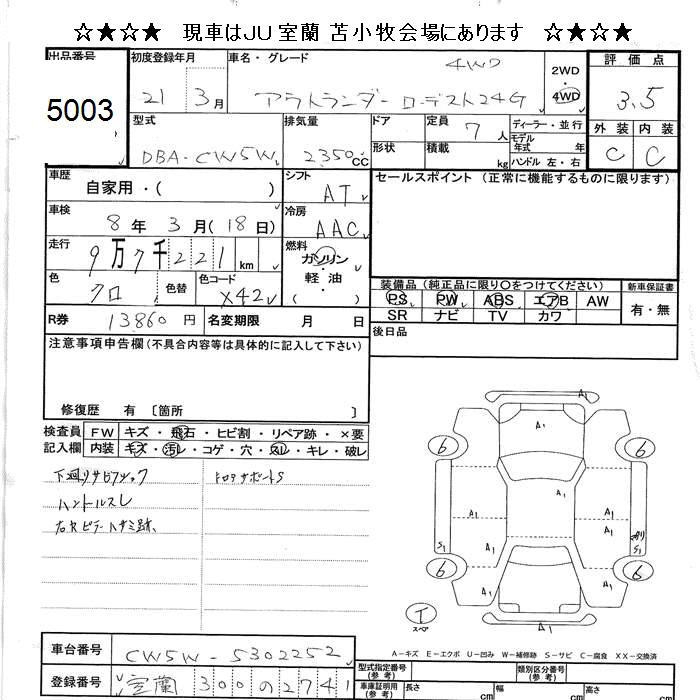 ☆★☆★ 現車はJU 室蘭 苫小牧会場にあります ☆★☆★
出品番号 初度登録年月 車名・グレード 2WD 評価点
5003 21 3月 アウトランダー ローデスト24G 4WD 4WD 3.5
型式 排気量 ドア 定員 7人 ディーラー・並行 外装 内装
DBA-CW5W 2350CC 形状 積載 kg モデル年式 年 C C
ハンドル 左・右
車歴 シフト セールスポイント (正常に機能するものに限ります)
自家用・( ) AT
車検 冷房
8年 3月(18日) AAC
走行 燃料
9万7千221km ガソリン・
軽・油
( )
色 色替 色コード 装備品 (純正品に限り○をつけてください) 新車保証書
クロ X42 PS PW ABS エアB AW 有・無
SR ナビ TV カワ
R券 13,860円 名変期限 月 日 後日品
注意事項申告欄(不具合内容等は具体的に記入して下さい)
修復歴 有 〔箇所 〕
検査員 FW キズ・飛石・ヒビ割・リペア跡・×要
記入欄 内装 キズ・汚レ・コゲ・穴・スレ・キレ・破レ
下廻りサビ
ハンドルスレ
A1
A1
6 6
A1 A1
A1 A1
A1
S1 S1
6 6
A1 A1
A1
T
スペア
A-キズ E-エクボ U-凹み W-補修跡 S-サビ C-腐食 XX-交換済
車台番号 CW5W-5302252 型式指定番号(参考) 類別区分番号(参考)
登録番号 室蘭 300 の 2741 車庫証明用(参考) 長さ cm 幅 cm 高さ cm